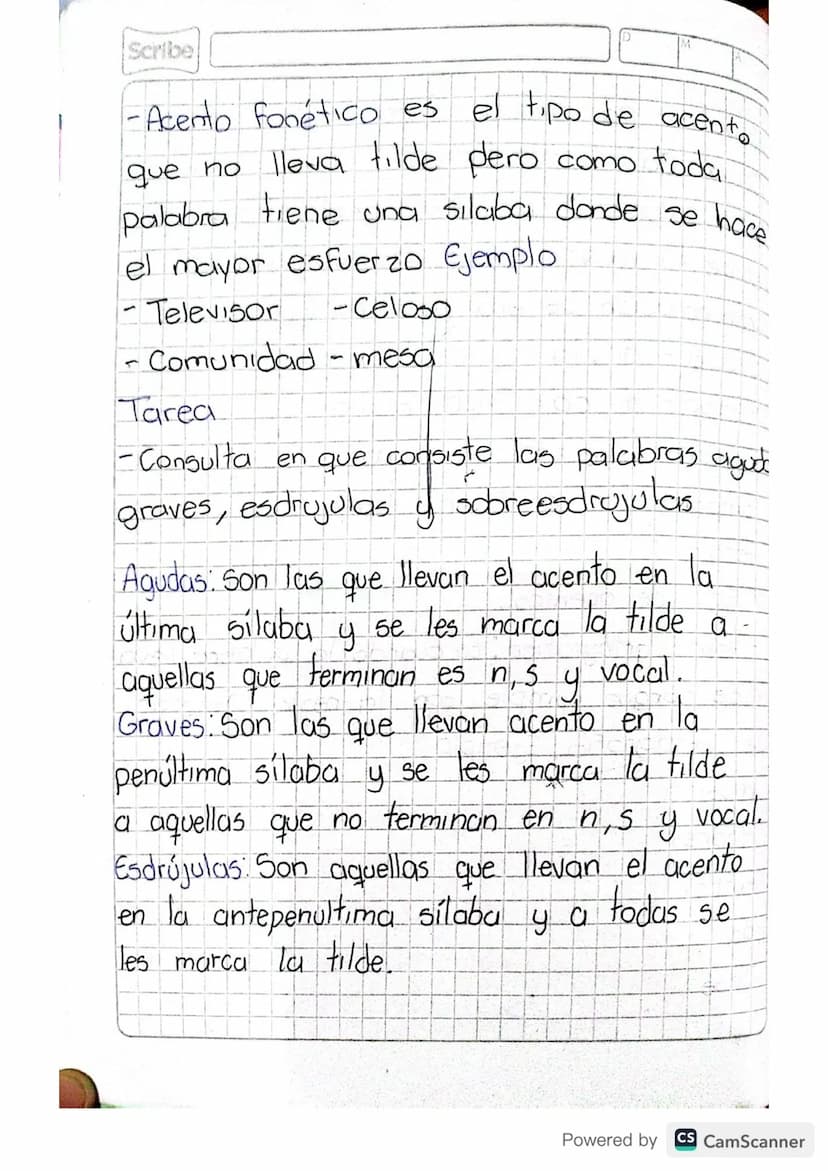 Scribe
D M A
- Acento fonético es el tipo de acento
que no lleva tilde pero como toda
palabra tiene una silaba donde se hace
el mayor esfuerzo Ejemplo
- Televisor - Celoso
- Comunidad - mesa
Tarea
- Consulta en que consiste las palabras agud
graves, esdrujulas y sobreesdrujulas
Agudas: Son las que llevan el acento en la
última sílaba y se les marca la tilde a -
aquellas que terminan es n, s y vocal.
Graves: Son las que llevan acento en la
penúltima sílaba y se les marca la tilde
a aquellas que no terminan en n, s y vocal.
Esdrújulas: Son aquellas que llevan el acento
en la antepenultima sílaba y a todas se
les marca la tilde.
Powered by CS CamScanner